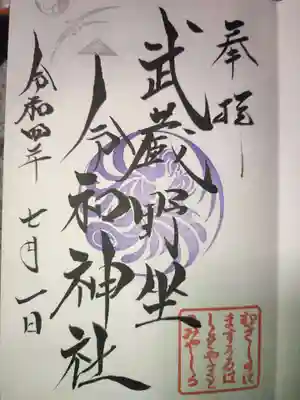 奉拝
武蔵野坐
令和神社
令和四年 七月一日
むさしのに
ますうるは
しきやまと
のみやしろ